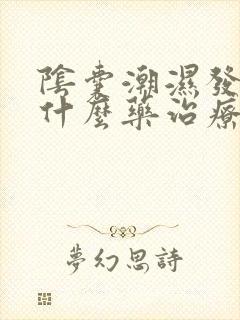 陰囊潮濕發
什麼藥治療
夢幻思詩